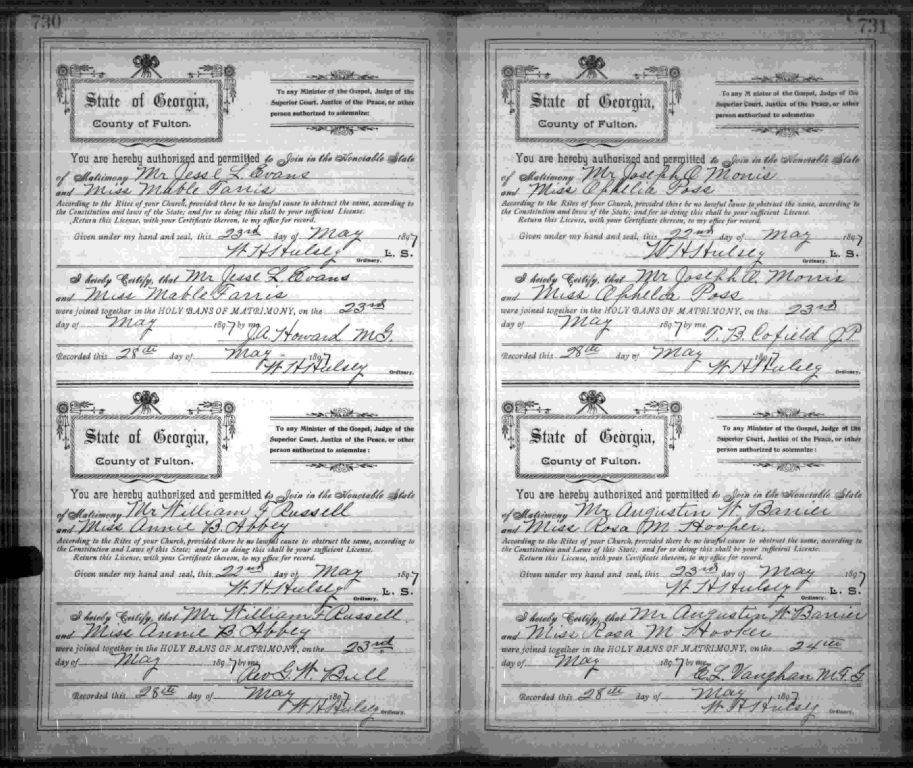 730
State of Georgia,
County of Fulton.
To any Minister of the Gospel, Judge of the
Superior Court, Justice of the Peace, or other
person authorized to solemnize:
You are hereby authorized and permitted to Join in the Honorable State
of Matrimony Mr Jesse L. Evans
and Miss Mable Farris
According to the Rites of your Church, provided there be no lawful cause to obstruct the same, according to
the Constitution and laws of the State; and for so doing this shall be your sufficient License.
Return this License, with your Certificate thereon, to my office for record.
Given under my hand and seal, this 23rd day of May 1897
W H Hulsey L. S.
Ordinary.
I hereby Certify, that Mr Jesse L. Evans
and Miss Mable Farris
were joined together in the HOLY BANS OF MATRIMONY, on the 23rd
day of May 1897 by me,
J.A. Howard M.G.
Recorded this 28th day of May 1897
W H Hulsey Ordinary.
State of Georgia,
County of Fulton.
To any Minister of the Gospel, Judge of the
Superior Court, Justice of the Peace, or other
person authorized to solemnize:
You are hereby authorized and permitted to Join in the Honorable State
of Matrimony Mr William F Russell
and Miss Annie B Abbey
According to the Rites of your Church, provided there be no lawful cause to obstruct the same, according to
the Constitution and Laws of this State; and for so doing this shall be your sufficient License.
Return this License, with your Certificate thereon, to my office for record.
Given under my hand and seal, this 22nd day of May 1897
W. H Hulsey L. S.
Ordinary.
I hereby Certify, that Mr William F Russell
and Miss Annie B Abbey
were joined together in the HOLY BANS OF MATRIMONY, on the 23rd
day of May 1897 by me,
Rev G. W. Bull
Recorded this 28th day of May 1897
W H Hulsey Ordinary.
731
State of Georgia,
County of Fulton.
To any Minister of the Gospel, Judge of the
Superior Court, Justice of the Peace, or other
person authorized to solemnize:
You are hereby authorized and permitted to Join in the Honorable State
of Matrimony Mr Joseph O Morris
and Miss Ophelia Poss
According to the Rites of your Church, provided there be no lawful cause to obstruct the same, according to
the Constitution and laws of the State; and for so doing this shall be your sufficient License.
Return this License, with your Certificate thereon, to my office for record.
Given under my hand and seal, this 22nd day of May 1897
W H Hulsey L. S.
Ordinary.
I hereby Certify, that Mr Joseph O. Morris
and Miss Ophelia Poss
were joined together in the HOLY BANS OF MATRIMONY, on the 23rd
day of May 1897 by me,
T. B. Cofield J.P.
Recorded this 28th day of May 1897
W H Hulsey Ordinary.
State of Georgia,
County of Fulton.
To any Minister of the Gospel, Judge of the
Superior Court, Justice of the Peace, or other
person authorized to solemnize:
You are hereby authorized and permitted to Join in the Honorable State
of Matrimony Mr Augustin W Banier
and Miss Rosa M Hooper.
According to the Rites of your Church, provided there be no lawful cause to obstruct the same, according to
the Constitution and Laws of this State; and for so doing this shall be your sufficient License.
Return this License, with your Certificate thereon, to my office for record.
Given under my hand and seal, this 23rd day of May 1897
W. H Hulsey L. S.
Ordinary.
I hereby Certify, that Mr Augustin W Banier
and Miss Rosa M Hooker
were joined together in the HOLY BANS OF MATRIMONY, on the 24th
day of May 1897 by me,
C. L. Vaughan M.F.G
Recorded this 28th day of May 1897
W H Hulsey Ordinary.